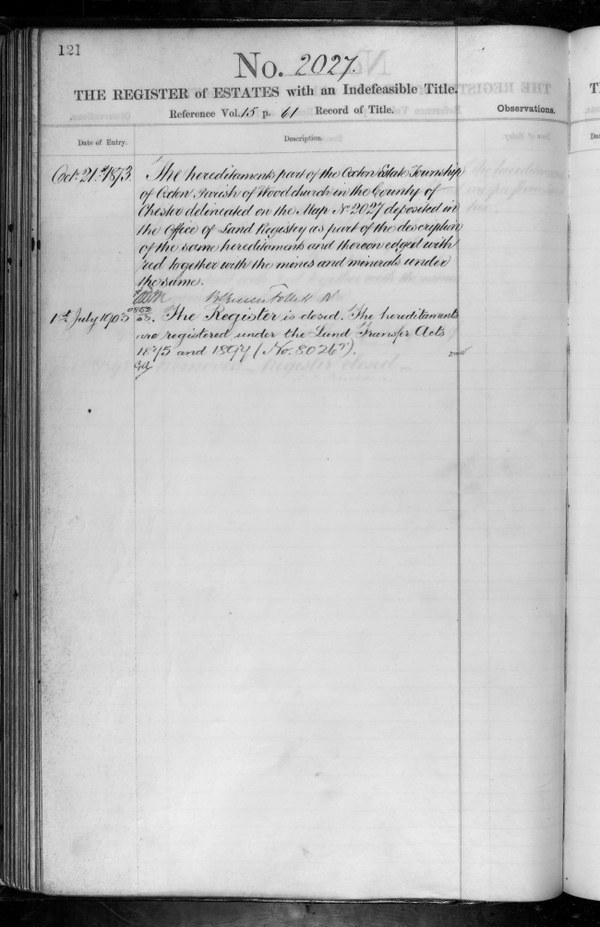 121
No. 2027.
THE REGISTER of ESTATES with an Indefeasible Title.
Reference Vol. 15 p. 61 Record of Title.
Observations.
Date of Entry.
Description.
Oct. 21st 1873. The hereditaments part of the Oxton Estate Township
of Oxton Parish of Woodchurch in the County of
Chester delineated on the Map No 2027 deposited in
the Office of Land Registry as part of the description
of the same hereditaments and thereon edged with
red together with the mines and minerals under
the same.
Follett
1st July 1903. The Register is closed. The hereditaments
are registered under the Land Transfer Acts
1875 and 1897 (No. 80267).